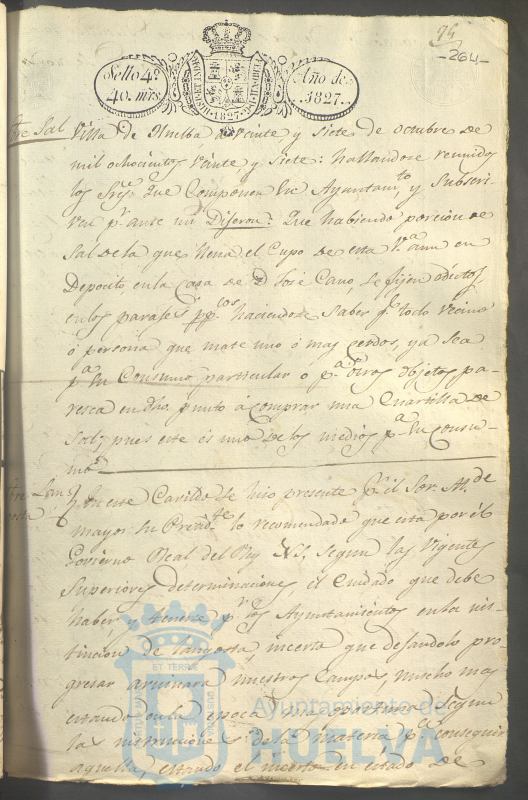 94
264
Sello 4º
40. mrs.
HISPAN. ET IND. REX
1827
Año de
1827.
Sre Sal
Villa de Huelba a veinte, y siete de octubre de
mil ochocientos veinte y siete: hallandose reunidos
los Sres. que componen su Ayuntamto. y subscri-
ven pr. ante mi Dijeron: Que habiendo porcion de
Sal de la que llena el Cupo de esta Va. aun en
Deposito en la Casa de D. José Cano se fijen edictos
en los parajes ppcos. haciendose saber qe. todo vecino
ó persona que mate uno ó mas cerdos, ya sea
pa. su consumo particular ó pa. otros objetos pa-
resca en dho. punto á comprar una Cuartilla de
Sal; pues este es uno de los medios pa. su consu-
mo.
Sre Lan-
gosta
En este Cavildo se hizo presente pr. el Sor. Alde
mayor su Preste. lo recomendado que esta por él
Govierno Real del Rey N.S. segun las vigentes
Superiores determinaciones, el cuidado que debe
haber, y tenerse pr. los Ayuntamientos en la es-
tincion de langosta incerto que dejandolo pro-
gresar arruinara nuestros Campos, mucho mas
estando en la epoca mas oportuna segun
las instrucciones de la materia pa. conseguir
aquella, estando el incerto en estado de
ET TERRÆ
Ayuntamiento de
HUELVA